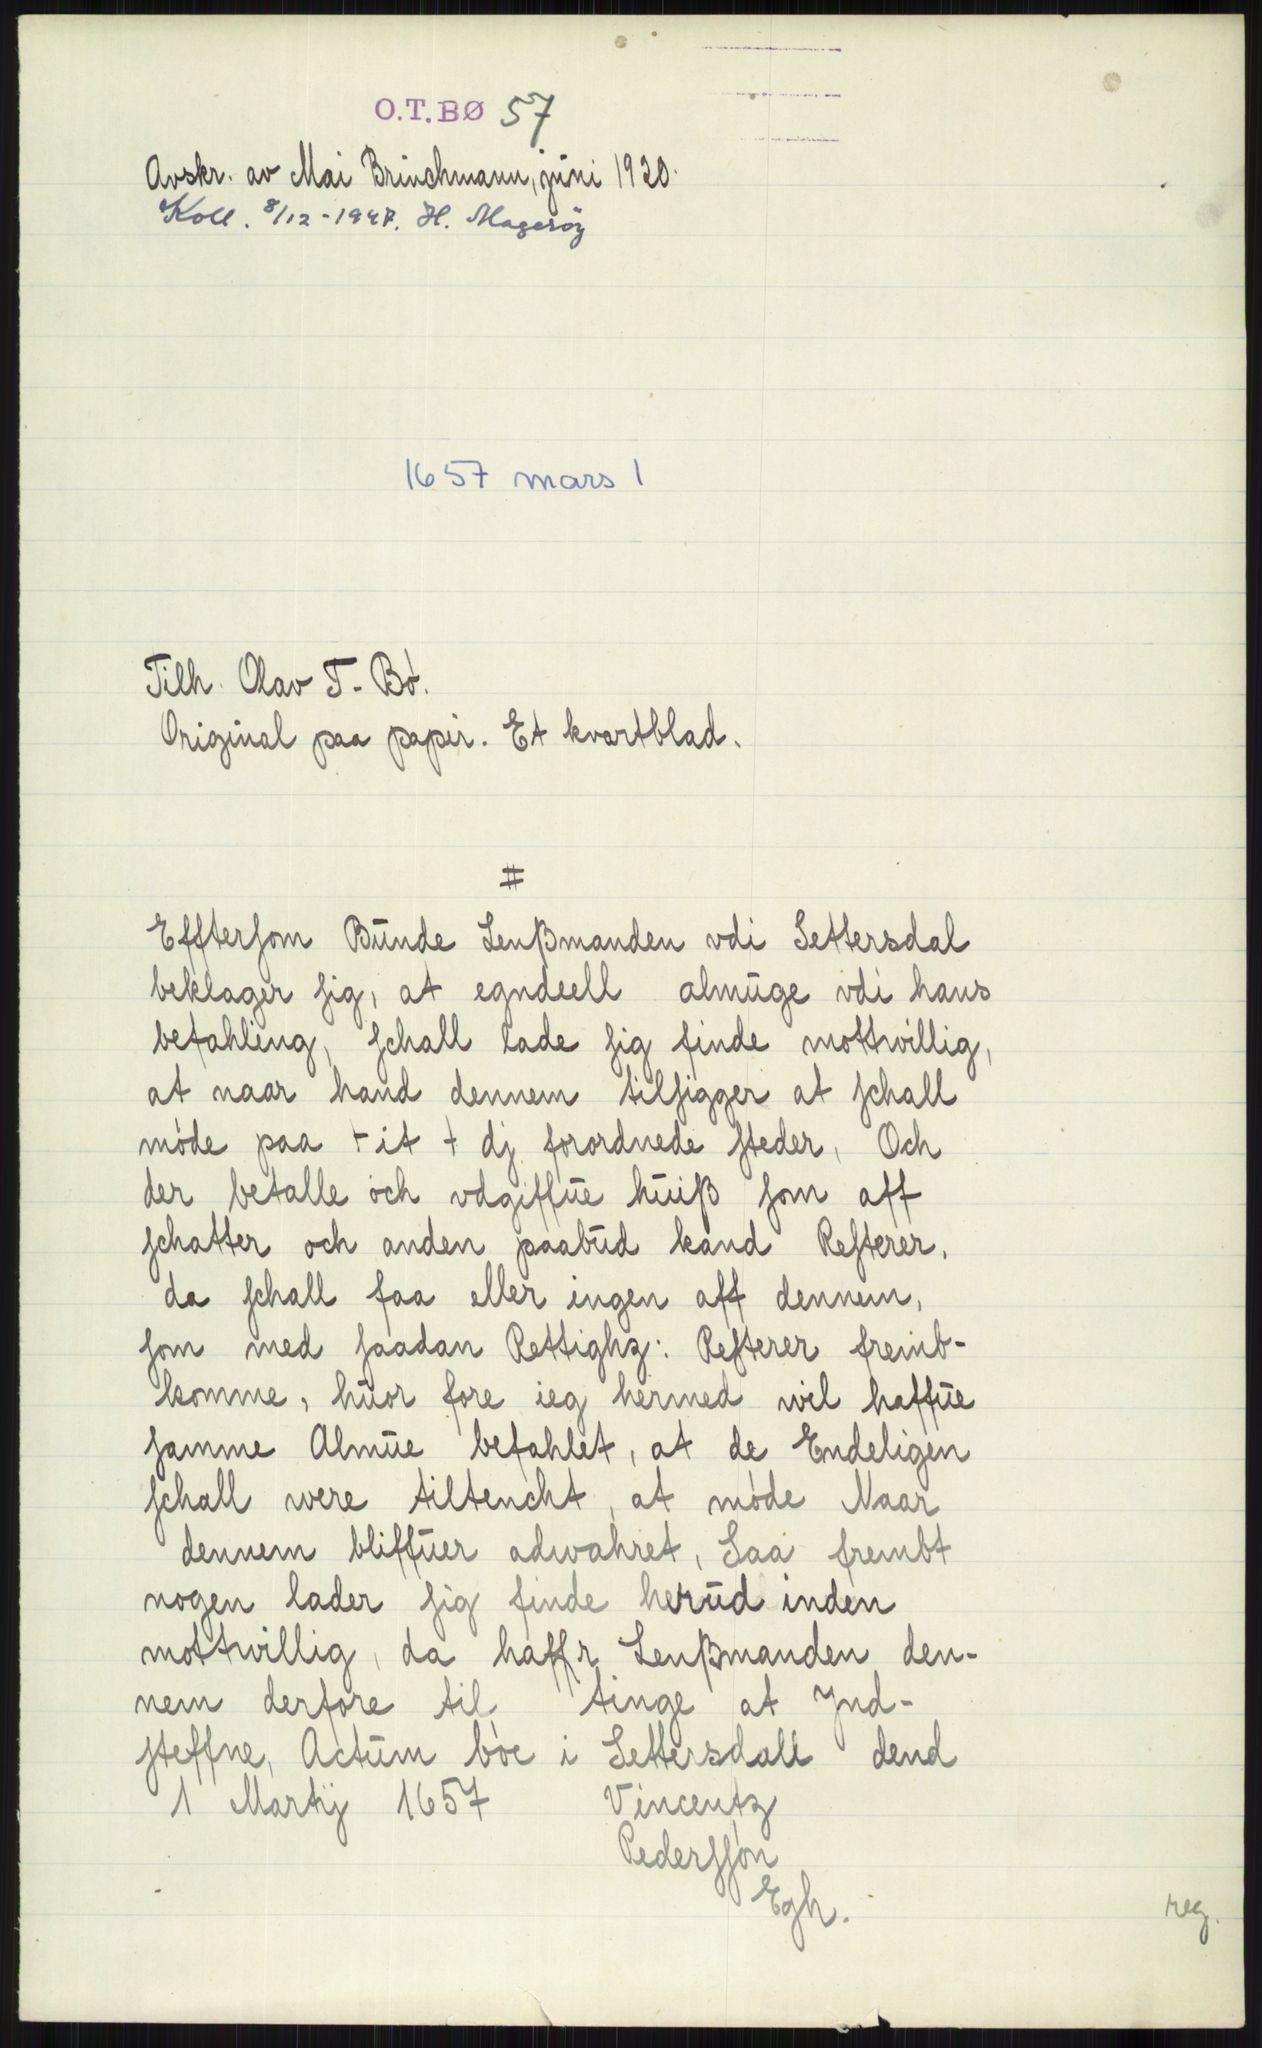 O.T.BØ 57
Avskr. av Mai Brinchmann, juni 1920.
Koll. 8/12-1947. H. Magerøy
1657 mars 1
Tilh. Olav T. Bø.
Original paa papir. Et kvartblad.
#
Efftersom Bünde Lenßmanden vdi Settersdal
beklager sig, at egndeell almüge vdi hans
befahling, schall lade sig finde mottvillig,
at naar hand dennem tilsigger at schall
møde paa + it + dj forordnede steder, Och
der betalle och vdgiffue huiß som aff
schatter och anden paabüd kand Resterer,
da schall faa eller ingen aff dennem,
som med saadan Rettighz: Resterer fremb-
komme, huor fore ieg hermed wil haffue
samme Almüe befahlet, at de Endeligen
schall were tiltencht, at møde Naar
dennem bliffuer adwahret, Saa frembt
nogen lader sig finde herüd inden
mottvillig, da haffr Lenßmanden den-
nem derfore til tinge at Jnd-
steffne, Actum bøe i Settersdall dend
1 Martij 1657 Vincentz
Pederssøn
Egh.
reg.